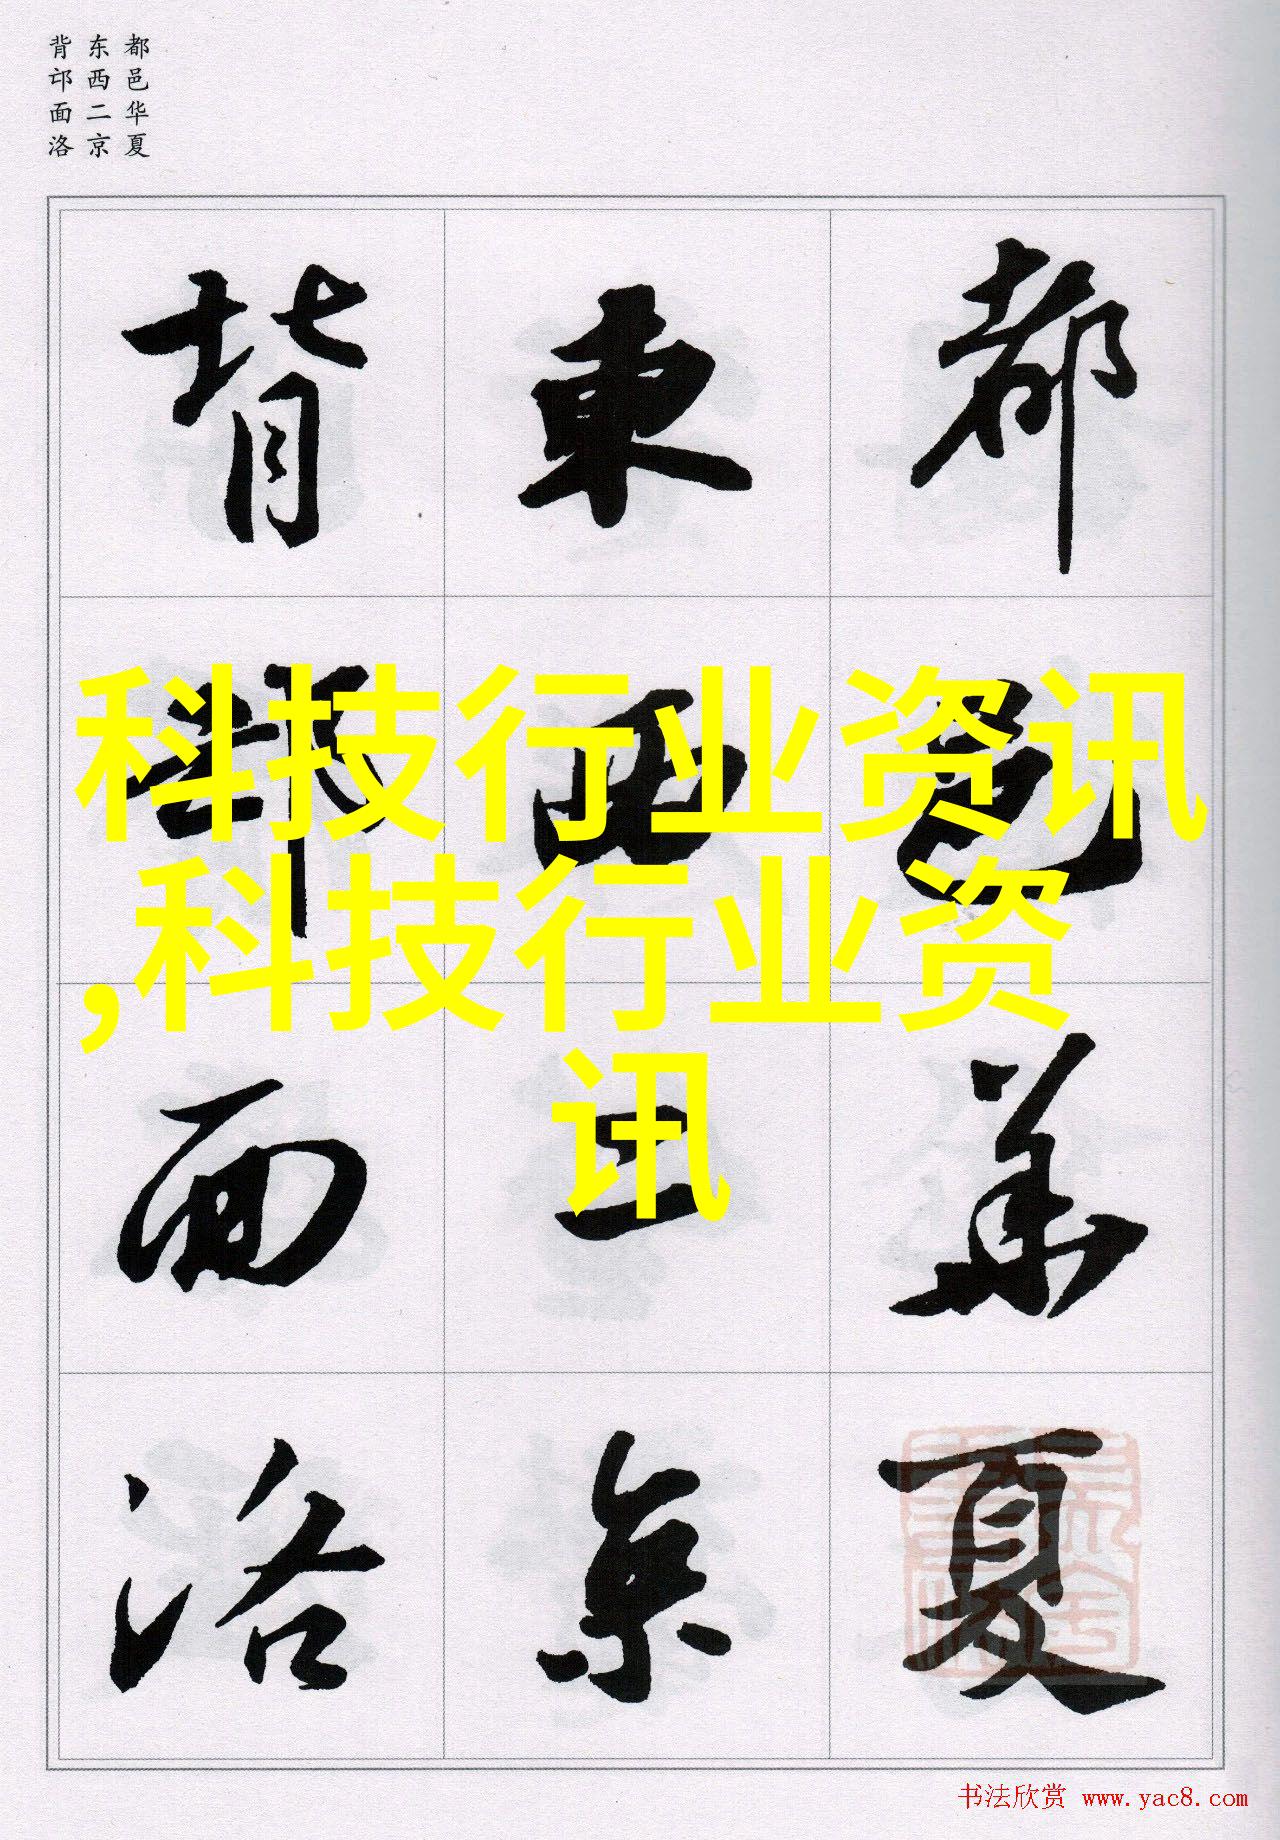 都邑华夏
东西二京
背邙面洛
都邑華夏
東西二京
背邙面洛
科技行业资讯
,科技行业资
讯
书法欣赏 www.yac8.com